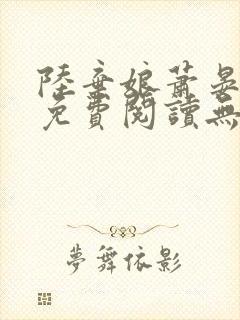 陸棄娘蕭晏
免費閱讀無
夢舞依影